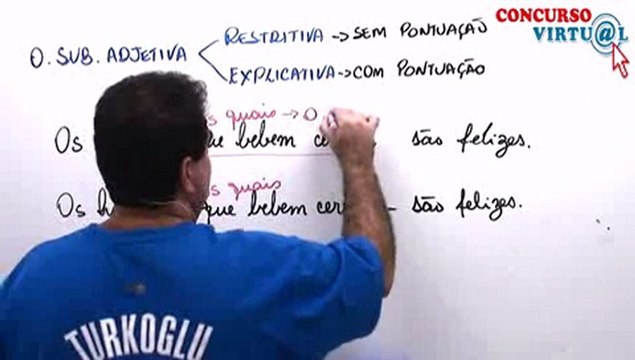 CONCURSO
VIRTU@L
O. SUB. ADJETIVA
RESTRITIVA → SEM PONTUAÇÃO
EXPLICATIVA → COM PONTUAÇÃO
quais → O
Os que bebem são felizes.
quais
Os que bebem são felizes.
TURKOGLU